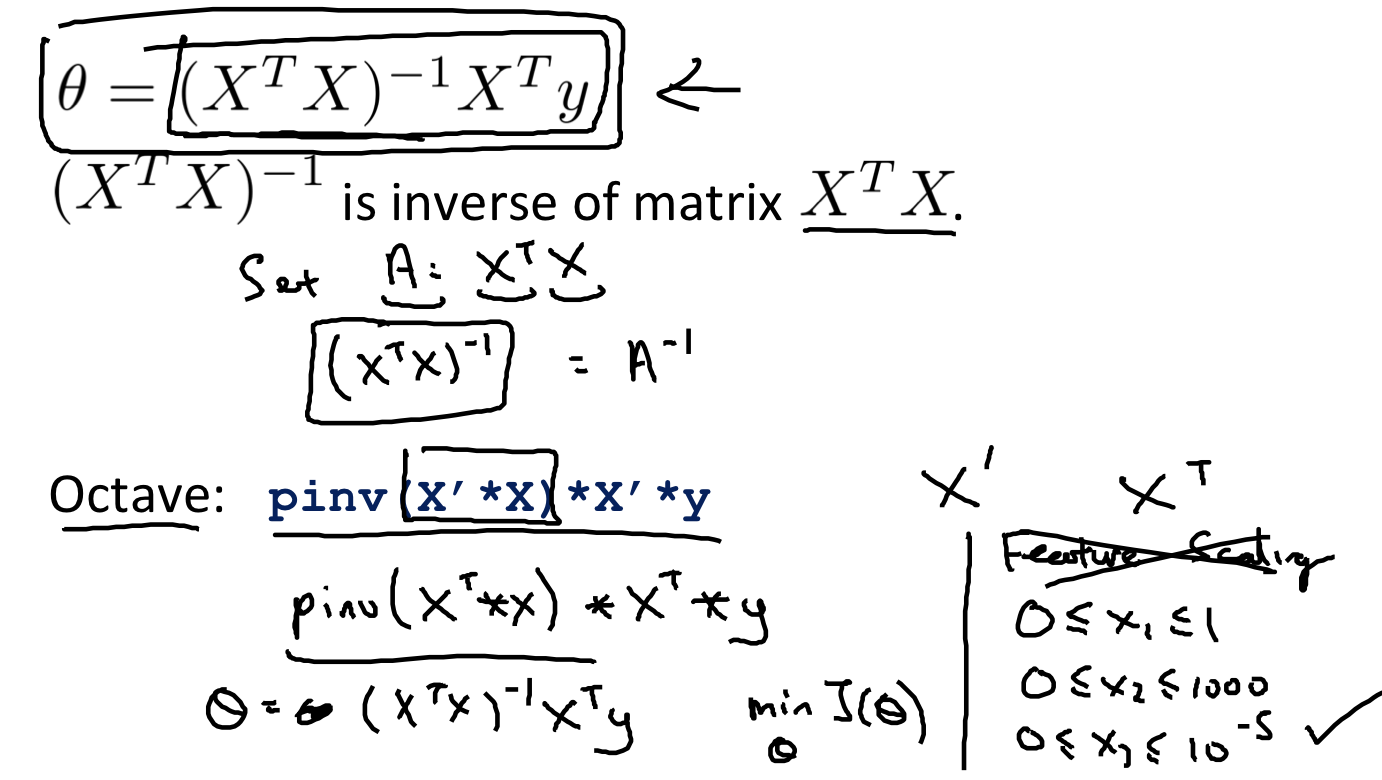 θ = (XᵀX)⁻¹Xᵀy ←
(XᵀX)⁻¹ is inverse of matrix XᵀX.
Set A = XᵀX
(XᵀX)⁻¹ = A⁻¹
Octave: pinv(X'*X)*X'*y
pinv(Xᵀ*X)*Xᵀ*y
θ = (XᵀX)⁻¹Xᵀy
min J(θ)
θ
X' Xᵀ
Feature Scaling
0 ≤ x₁ ≤ 1
0 ≤ x₂ ≤ 1000
0 ≤ x₃ ≤ 10⁻⁵ ✓